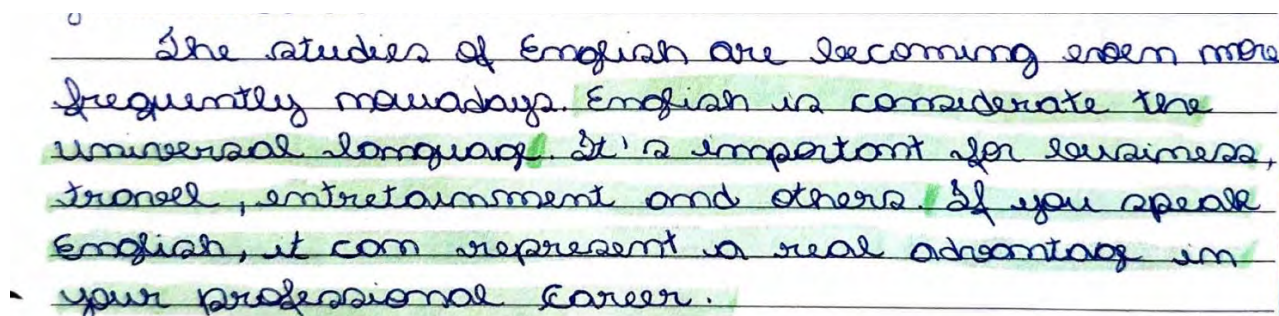 The studies of English are becoming even more
frequently nowadays. English is considerate the
universal language. It's important for business,
travel, entretainment and others. If you speak
English, it can represent a real advantage in
your professional career.